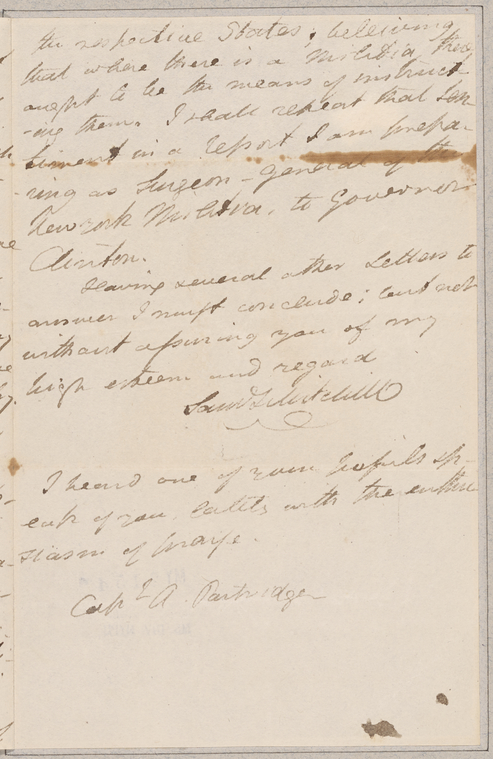 the respective States; believing
that where there is a Militia, there
ought to be the means of instruct-
-ing them. I shall repeat that sen-
timent in a Report I am prepa-
ring as Surgeon-general of the
Newyork Militia, to Governor
Clinton.
Having several other Letters to
answer I must conclude; but not
without assuring you of my
high esteem and regard
Saml L Mitchill
I heard one of your pupils sp-
eak of you, lately with the enthu
siasm of praise.
Capt A. Partridge